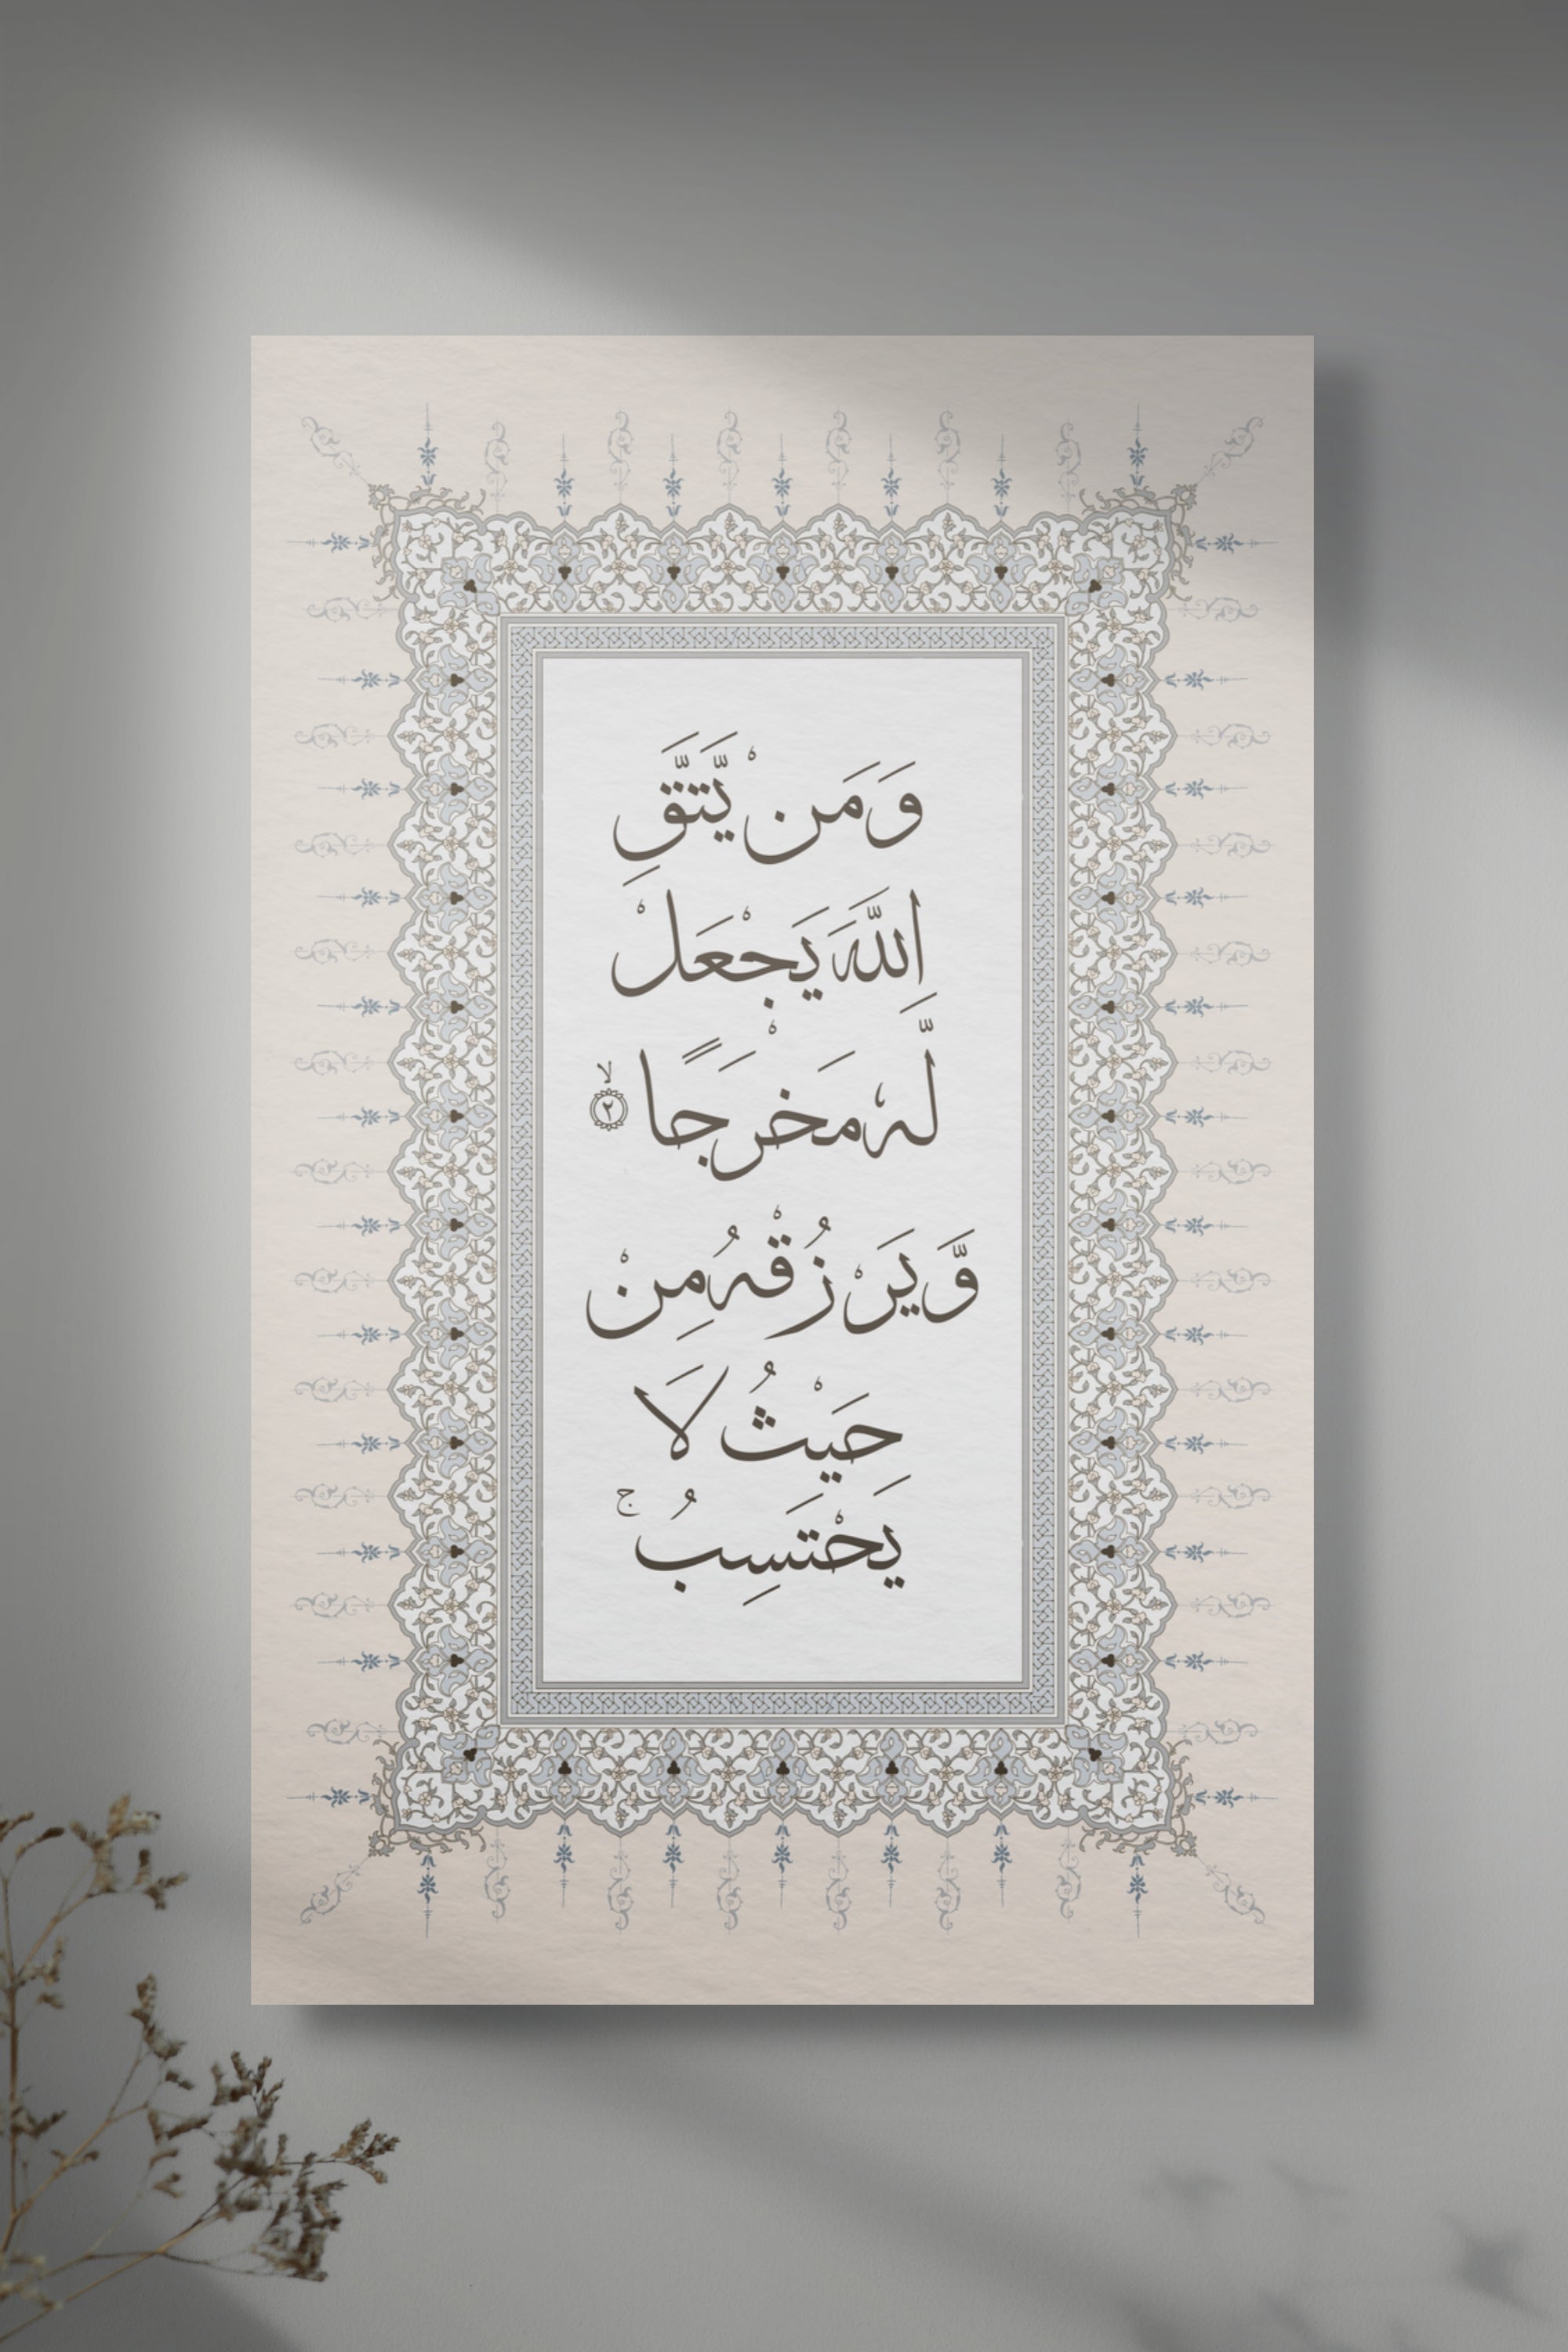 وَمَنْ يَّتَّقِ
اللّٰهَ يَجْعَلْ
لَّهٗ مَخْرَجًا ۙ ۝٢
وَّيَرْزُقْهُ مِنْ
حَيْثُ لَا
يَحْتَسِبُ ۚ